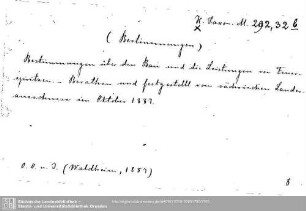 H. Saxon. M. 292,32 b
(Bestimmungen)
Bestimmungen über den Bau und die Leistungen von Feuer-
spritzen. - Berathen und festgestellt vom sächsischen Landes-
ausschuss im Oktober 1887.
O. O. u. J. (Waldheim, 1887)
8
Sächsische Landesbibliothek -
Staats- und Universitätsbibliothek Dresden